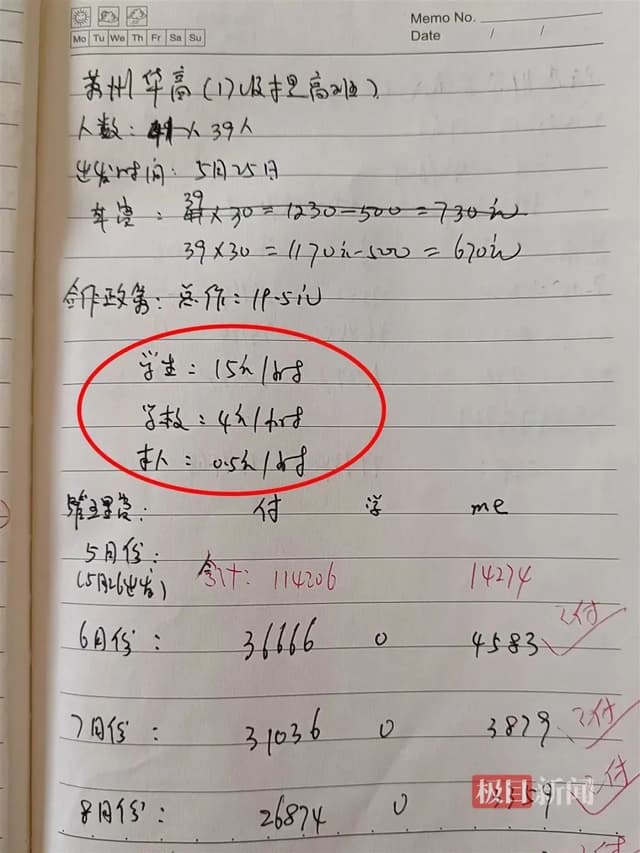 Memo No.
Mo Tu We Th Fr Sa Su
Date / /
苏州华高(17级提高班)
人数: 39人
出发时间: 5月25日
39
车费: 41×30=1230-500=730元
39×30=1170元-500=670元
合作政策: 总价: 19.5元
学生: 15元/时
学校: 4元/时
本人: 0.5元/时
管理费: 付 学 me
5月份:
(5月26出发) 合计: 114206 14274
6月份: 36666 0 4583 已付
7月份: 31036 0 3879 已付
8月份: 26874 0 3359 已付
极目新闻